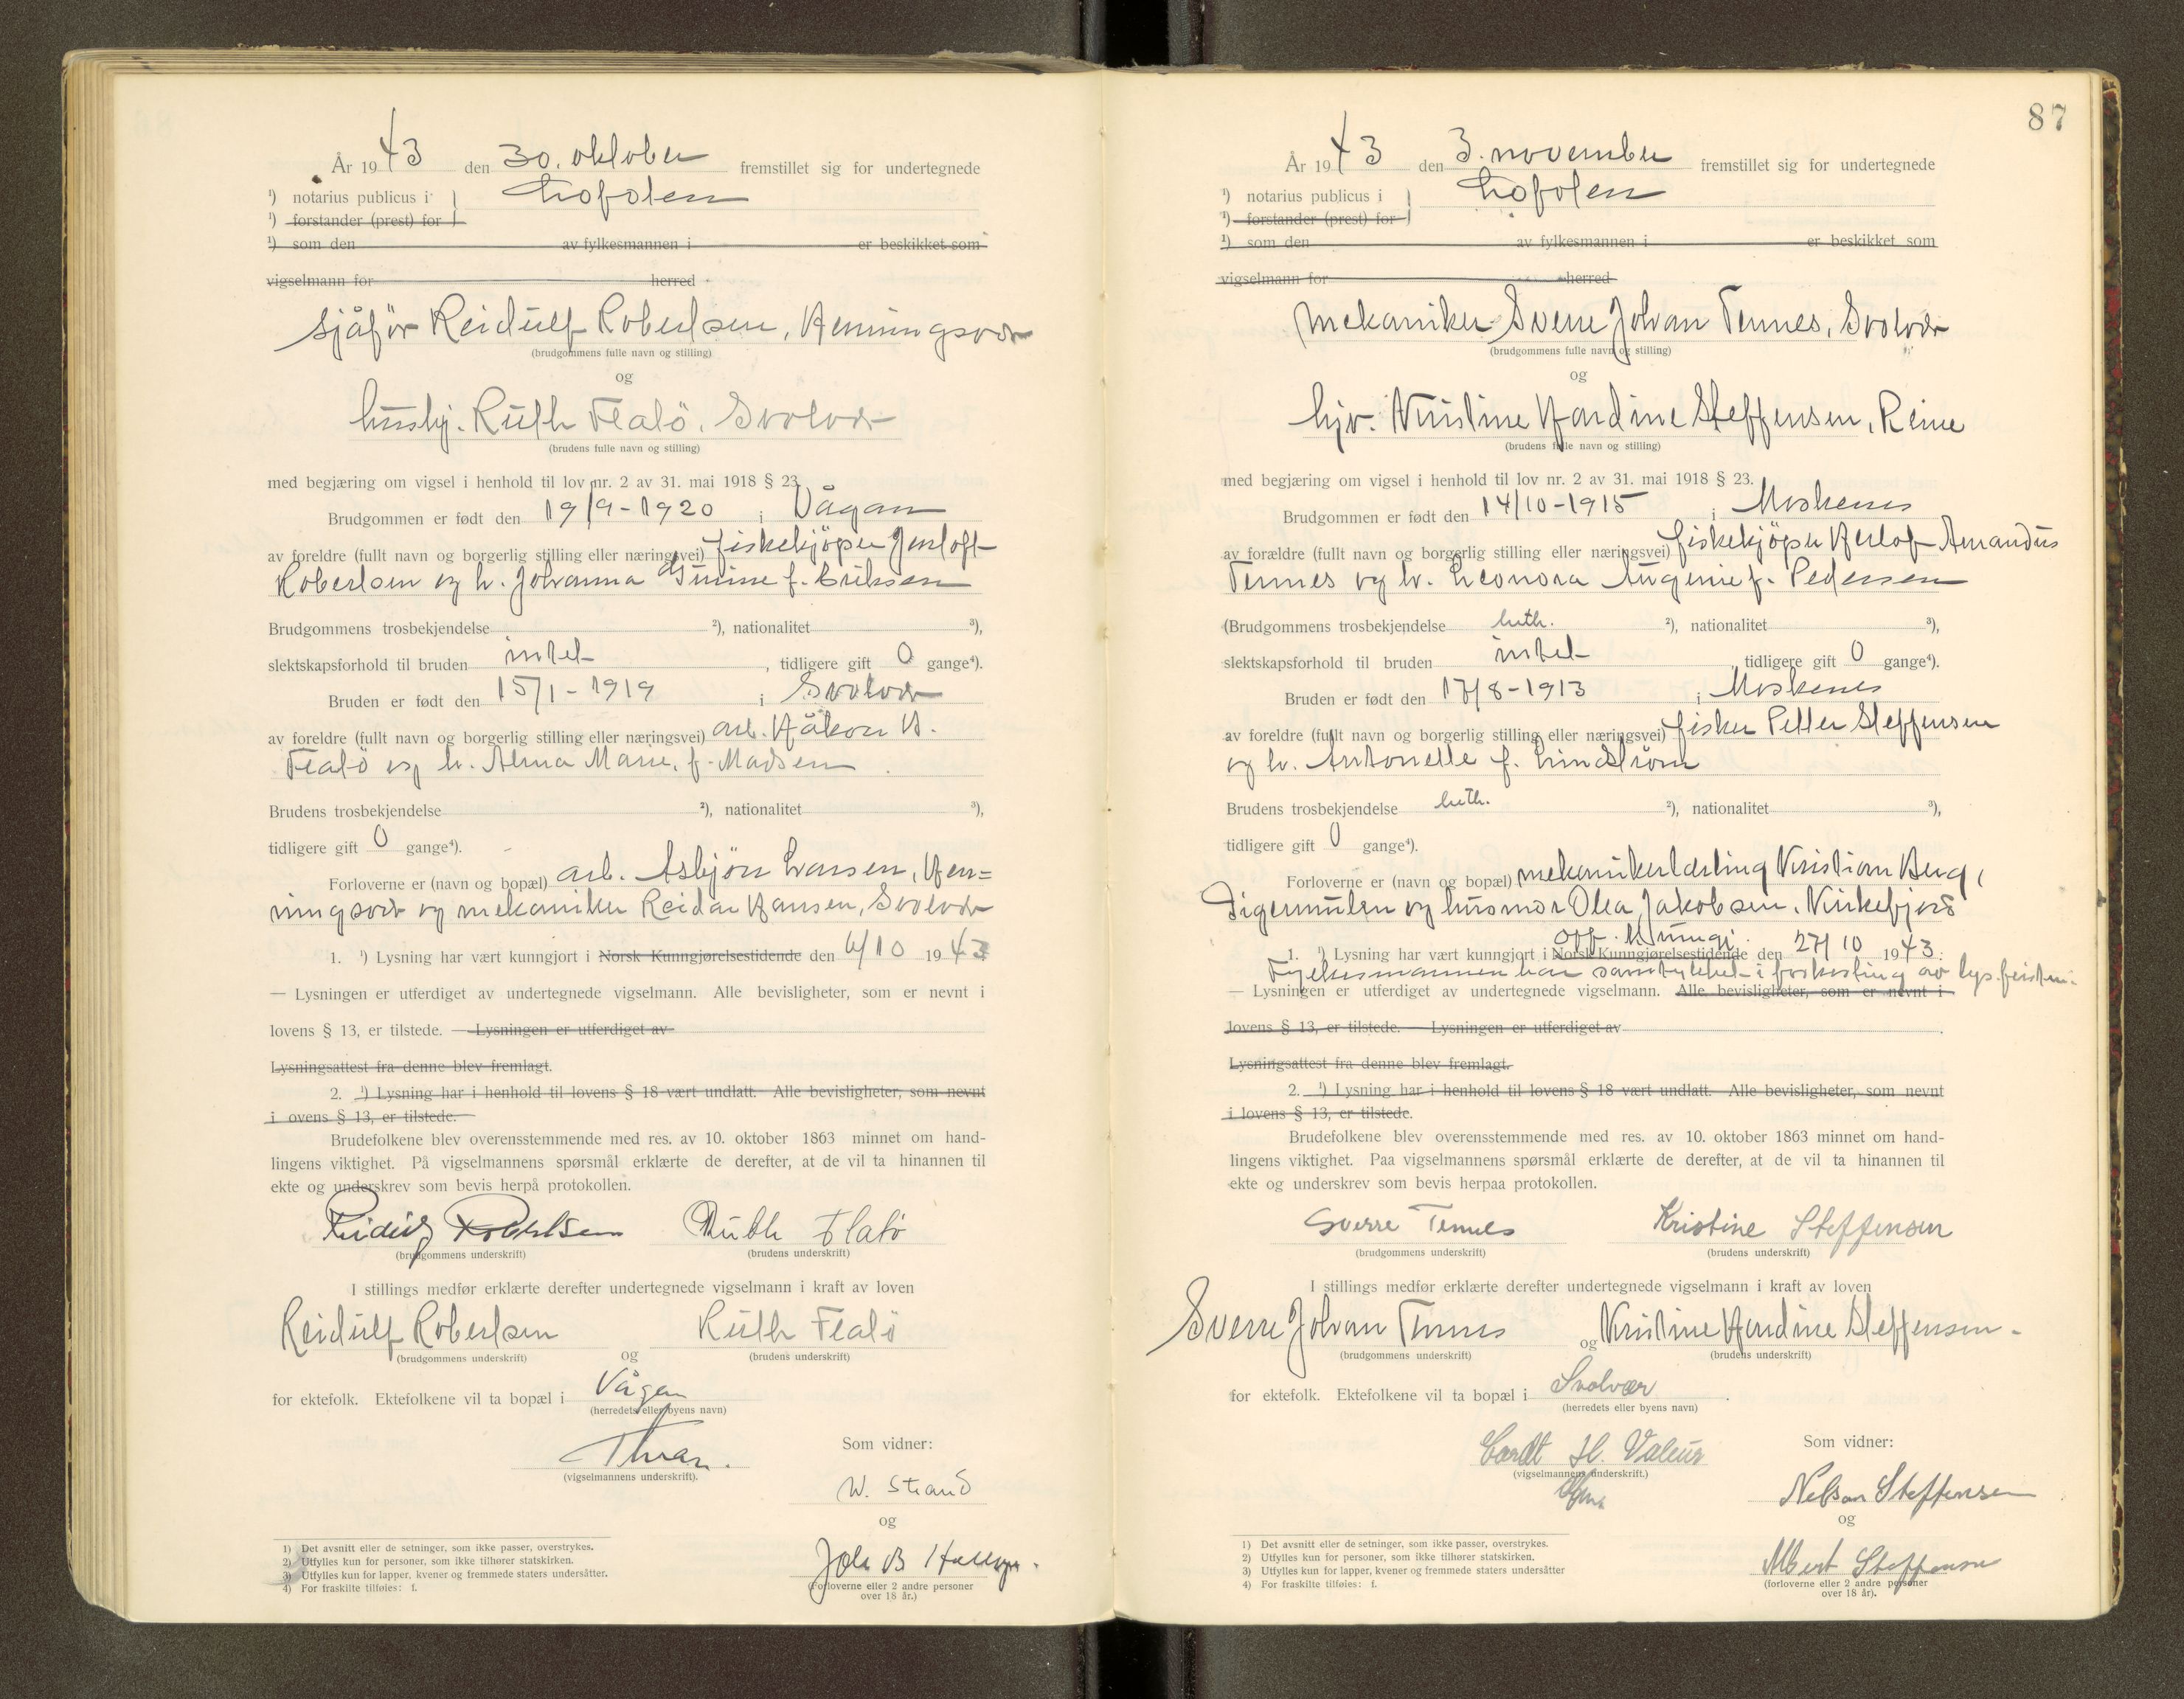 År 1943 den 30. oktober fremstillet sig for undertegnede
¹) notarius publicus i Lofoten
¹) forstander (prest) for
¹) som den av fylkesmannen i er beskikket som
vigselmann for herred
sjåfør Reidulf Robertsen, Henningsvær
(brudgommens fulle navn og stilling)
og
hushj. Ruth Flatö, Svolvær
(brudens fulle navn og stilling)
med begjæring om vigsel i henhold til lov nr. 2 av 31. mai 1918 § 23.
Brudgommen er født den 19/9-1920 i Vågan
av foreldre (fullt navn og borgerlig stilling eller næringsvei) fiskekjöper Jentoft
Robertsen og h. Johanna f. Eriksen
Brudgommens trosbekjendelse ²), nationalitet ³),
slektskapsforhold til bruden intet, tidligere gift 0 gange⁴).
Bruden er født den 15/1-1919 i Svolvær
av foreldre (fullt navn og borgerlig stilling eller næringsvei) arb. Håkon H.
Flatö og h. Alma Marie, f. Madsen
Brudens trosbekjendelse ²), nationalitet ³),
tidligere gift 0 gange⁴).
Forloverne er (navn og bopæl) arb. Asbjörn Larsen, Hen=
ningsvær og mekaniker Reidar Hansen, Svolvær
1. ¹) Lysning har vært kunngjort i Norsk Kunngjørelsestidende den 6/10 1943
— Lysningen er utferdiget av undertegnede vigselmann. Alle bevisligheter, som er nevnt i
lovens § 13, er tilstede. — Lysningen er utferdiget av
Lysningsattest fra denne blev fremlagt.
2. ¹) Lysning har i henhold til lovens § 18 vært undlatt. Alle bevisligheter, som nevnt
i ovens § 13, er tilstede.
Brudefolkene blev overensstemmende med res. av 10. oktober 1863 minnet om hand-
lingens viktighet. På vigselmannens spørsmål erklærte de derefter, at de vil ta hinannen til
ekte og underskrev som bevis herpå protokollen.
Reidulf Robertsen Ruth Flatö
(brudgommens underskrift) (brudens underskrift)
I stillings medfør erklærte derefter undertegnede vigselmann i kraft av loven
Reidulf Robertsen og Ruth Flatö
(brudgommens underskrift) (brudens underskrift)
for ektefolk. Ektefolkene vil ta bopæl i Vågan
(herredets eller byens navn)
(vigselmannens underskrift).
Som vidner:
W. Strand
og
(Forloverne eller 2 andre personer
over 18 år.)
1) Det avsnitt eller de setninger, som ikke passer, overstrykes.
2) Utfylles kun for personer, som ikke tilhører statskirken.
3) Utfylles kun for lapper, kvener og fremmede staters undersåtter.
4) For fraskilte tilføies: f.
87
År 1943 den 3. november fremstillet sig for undertegnede
¹) notarius publicus i Lofoten
¹) forstander (prest) for
¹) som den av fylkesmannen i er beskikket som
vigselmann for herred
mekaniker Sverre Johan Tennes, Svolvær
(brudgommens fulle navn og stilling)
og
hjv. Kristine Hardine Steffensen, Reine
(brudens fulle navn og stilling)
med begjæring om vigsel i henhold til lov nr. 2 av 31. mai 1918 § 23.
Brudgommen er født den 14/10-1915 i Moskenes
av forældre (fullt navn og borgerlig stilling eller næringsvei) fiskekjöper Herlof Amandus
Tennes og h. Leonora Augenie f. Pedersen
(Brudgommens trosbekjendelse luth. ²), nationalitet ³),
slektskapsforhold til bruden intet, tidligere gift 0 gange⁴).
Bruden er født den 17/8-1913 i Moskenes
av foreldre (fullt navn og borgerlig stilling eller næringsvei) fisker Petter Steffensen
og h. Antonette f. Lindström
Brudens trosbekjendelse luth. ²), nationalitet ³),
tidligere gift 0 gange⁴).
Forloverne er (navn og bopæl) mekanikerlærling Kristian Berg,
Digermulen og husmor Olea Jakobsen, Kirkefjord
off. kunngj.
1. ¹) Lysning har vært kunngjort i Norsk Kunngjørelsestidende den 27/10 1943.
Fylkesmannen har samtykket i forkorting av lys.fristen.
— Lysningen er utferdiget av undertegnede vigselmann. Alle bevisligheter, som er nevnt i
lovens § 13, er tilstede. — Lysningen er utferdiget av
Lysningsattest fra denne blev fremlagt.
2. ¹) Lysning har i henhold til lovens § 18 vært undlatt. Alle bevisligheter, som nevnt
i lovens § 13, er tilstede.
Brudefolkene blev overensstemmende med res. av 10. oktober 1863 minnet om hand-
lingens viktighet. Paa vigselmannens spørsmål erklærte de derefter, at de vil ta hinannen til
ekte og underskrev som bevis herpaa protokollen.
Sverre Tennes Kristine Steffensen
(brudgommens underskrift) (brudens underskrift)
I stillings medfør erklærte derefter undertegnede vigselmann i kraft av loven
Sverre Johan Tennes og Kristine Hardine Steffensen
(brudgommens underskrift) (brudens underskrift)
for ektefolk. Ektefolkene vil ta bopæl i Svolvær.
(herredets eller byens navn)
H. Valeur
(vigselmannens underskrift.)
Som vidner:
Nelson Steffensen
og
Albert Steffensen
(forloverne eller 2 andre personer
over 18 år).
1) Det avsnitt eller de setninger, som ikke passer, overstrykes.
2) Utfylles kun for personer, som ikke tilhører statskirken.
3) Utfylles kun for lapper, kvener og fremmede staters undersåtter
4) For fraskilte tilføies: f.